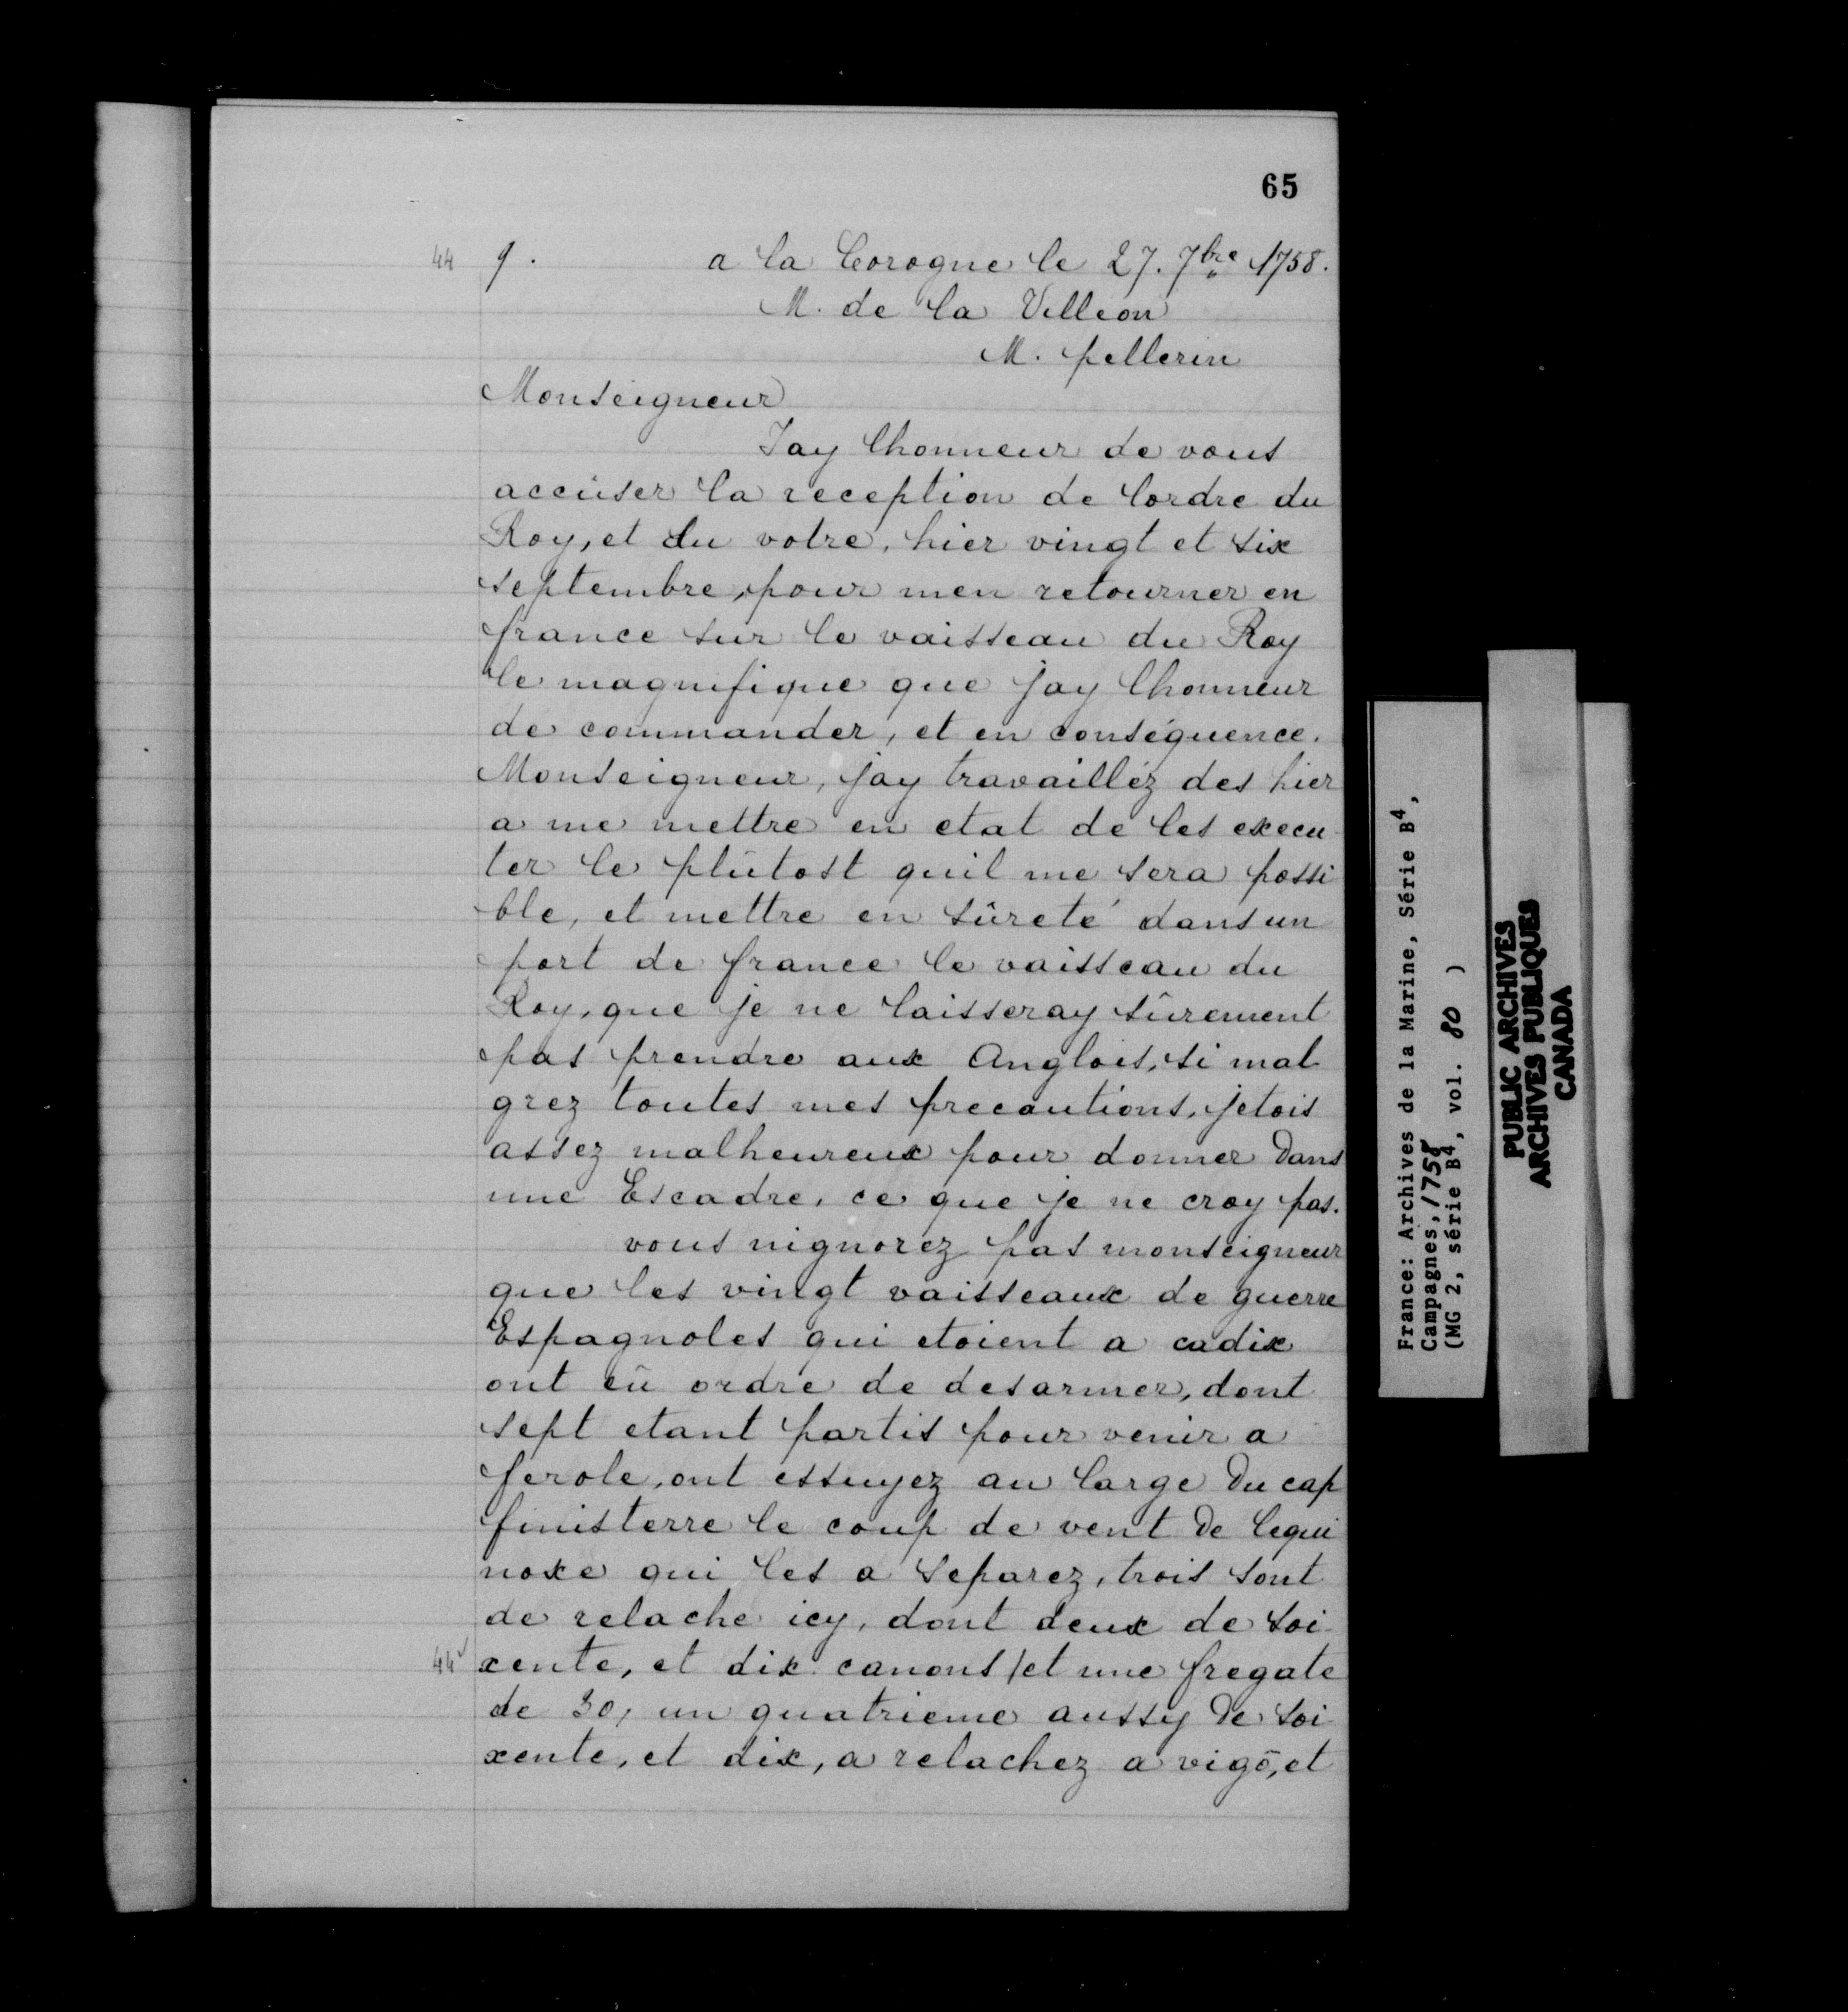 65
44 9. a la Corogne le 27. 7bre 1758.
M. de la Villeon
M. pellerin
Monseigneur
Jay lhonneur de vous
accûser la reception de lordre du
Roy, et du votre, hier vingt et six
septembre, pour men retourner en
france sur le vaisseau du Roy
le magnifique que jay lhonneur
de commander, et en conséquence.
Monseigneur, jay travailléz des hier
a me mettre en etat de les execu
ter le plûtost quil me sera possi
ble, et mettre en sûreté dans un
port de france le vaisseau du
Roy, que je ne laisseray sûrement
pas prendre aux Anglois, si mal
grez toutes mes precautions, jetois
assez malheureux pour donner dans
une Escadre, ce que je ne croy pas.
vous nignorez pas monseigneur
que les vingt vaisseaux de guerre
Espagnoles qui etoient a cadix
ont eû ordre de desarmer, dont
sept etant partis pour venir a
ferole, ont essuyez au large du cap
finisterre le coup de vent de lequi
noxe qui les a separez, trois sont
de relache icy, dont deux de soi
44v xente, et dix canons / et une fregate
de 30, un quatrieme aussy de soi
xente, et dix, a relachez a vigō, et
France: Archives de la Marine, Série B4,
Campagnes, 1758
(MG 2, série B4, vol. 80 )
PUBLIC ARCHIVES
ARCHIVES PUBLIQUES
CANADA